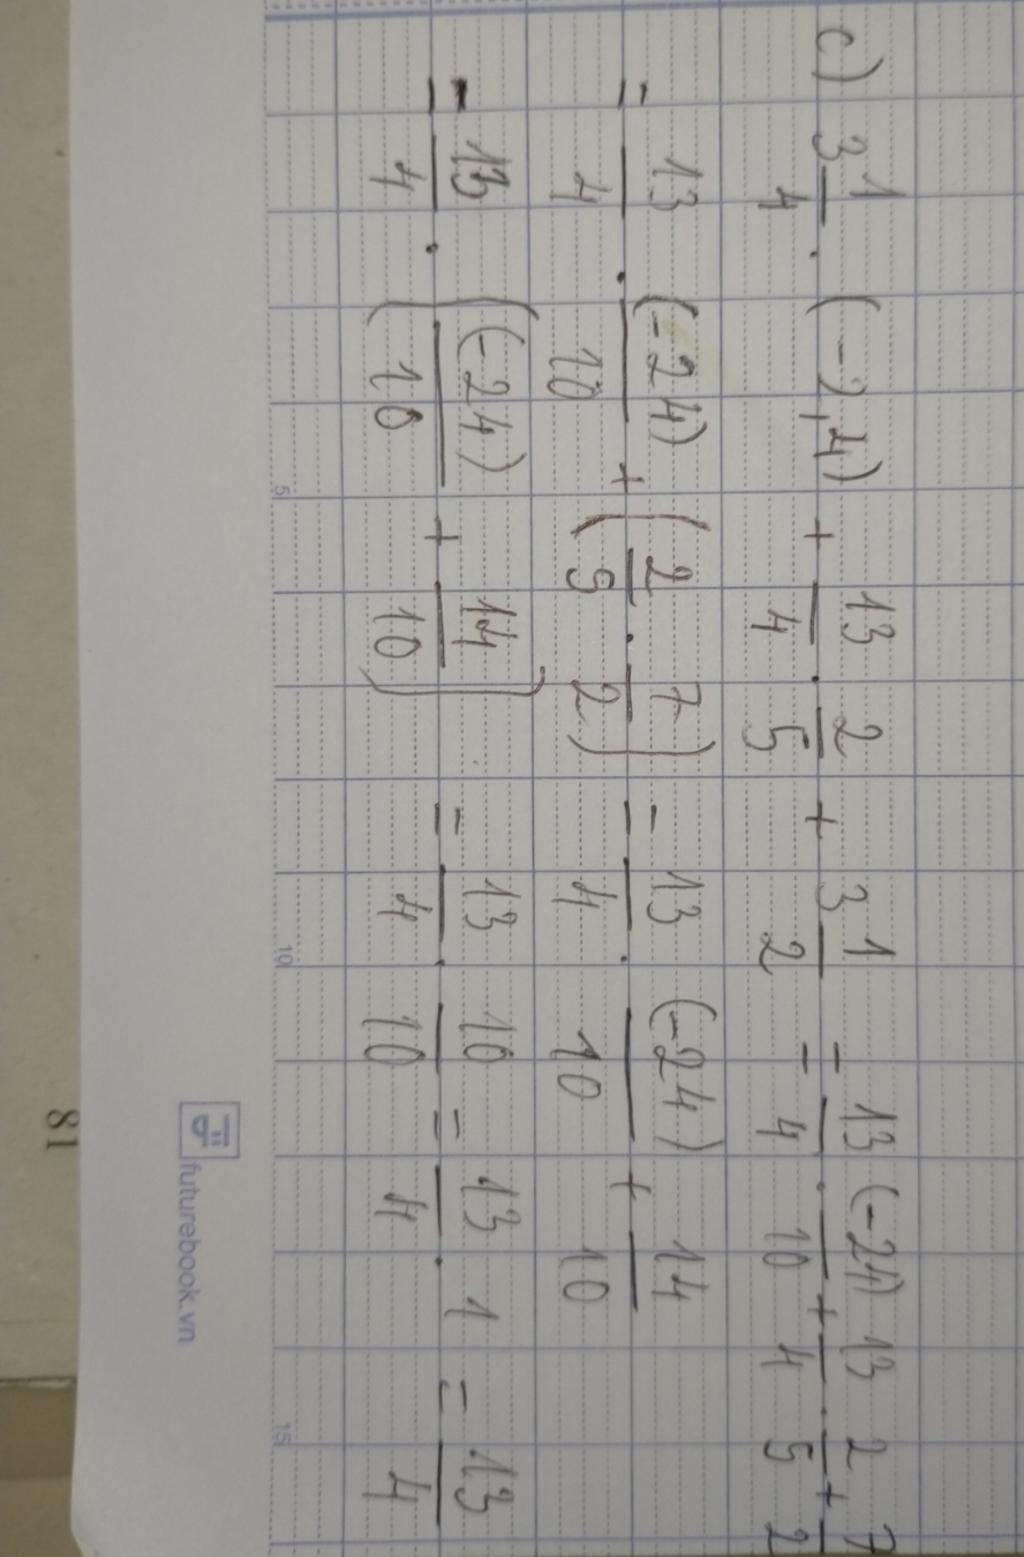 c) 3 1/4 . (-2,4) + 13/4 . 2/5 + 3 1/2 = 13/4 . (-24)/10 + 13/4 . 2/5 + 7/2
= 13/4 . (-24)/10 + (2/5 . 7/2) = 13/4 . (-24)/10 + 14/10
= 13/4 . ((-24)/10 + 14/10) = 13/4 . 10/10 = 13/4 . 1 = 13/4
5 10 15
futurebook.vn
81